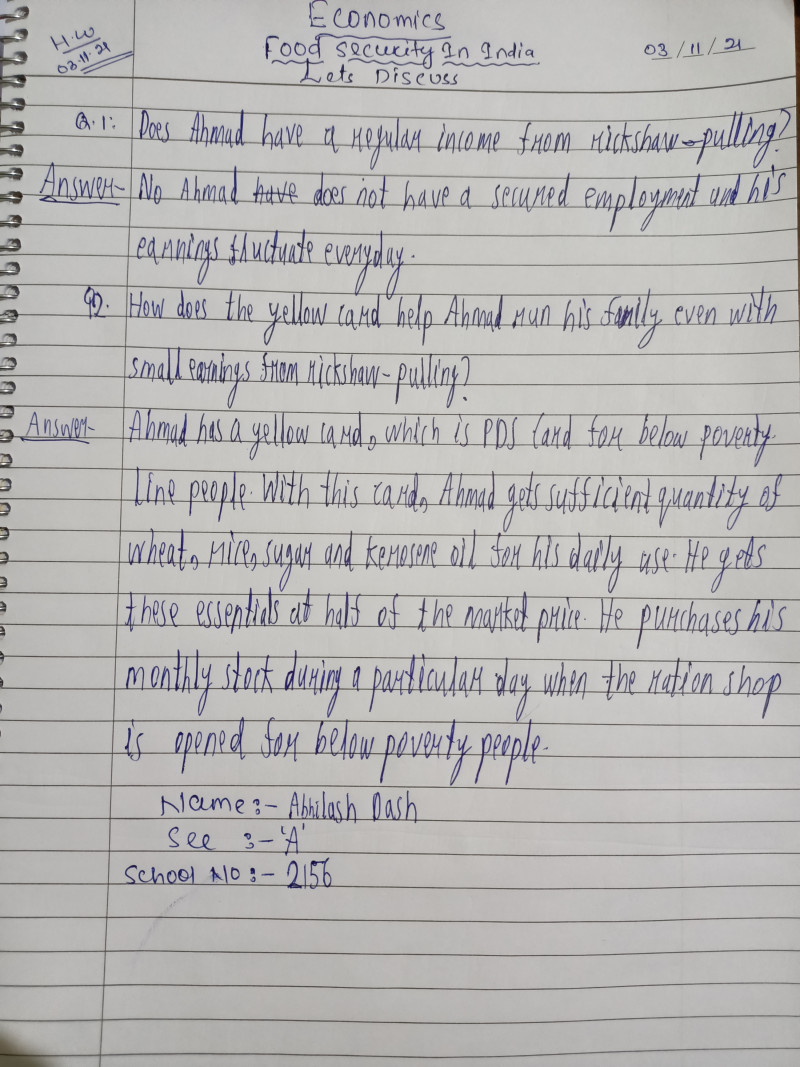 Economics
H.W
03.11.21
Food security In India
03/11/21
Lets Discuss
Q.1: Does Ahmad have a regular income from rickshaw-pulling?
Answer- No Ahmad have does not have a secured employment and his
earnings fluctuate everyday.
Q2. How does the yellow card help Ahmad run his family even with
small earnings from rickshaw-pulling?
Answer- Ahmad has a yellow card, which is PDS Card for below poverty
Line people. With this card, Ahmad gets sufficient quantity of
wheat, rice, sugar and kerosene oil for his daily use. He gets
these essentials at half of the market price. He purchases his
monthly stock during a particular day when the ration shop
is opened for below poverty people.
Name:- Abhilash Dash
Sec :- 'A'
School No:- 2156